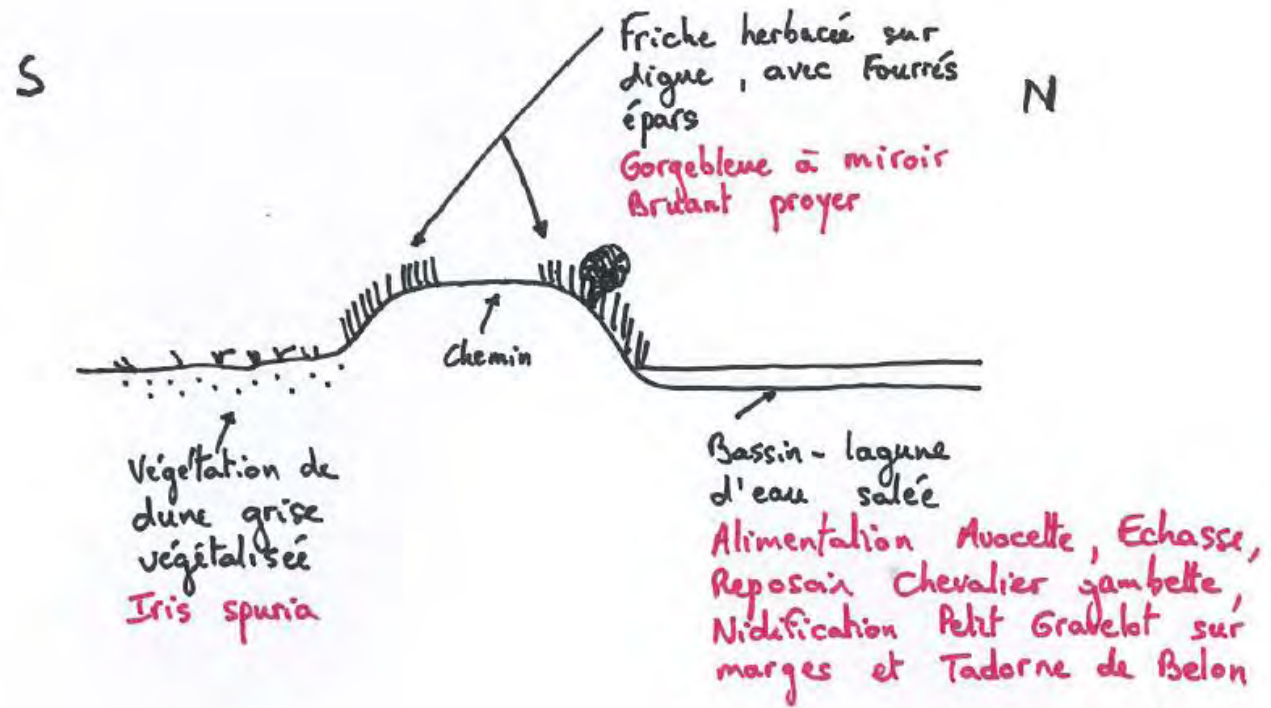 S
Friche herbacée sur
digue, avec Fourrés
épars
Gorgebleue à miroir
Bruant proyer
N
Chemin
Végétation de
dune grise
végétalisée
Iris spuria
Bassin - lagune
d'eau salée
Alimentation Avocette, Echasse,
Reposoir Chevalier gambette,
Nidification Petit Gravelot sur
marges et Tadorne de Belon